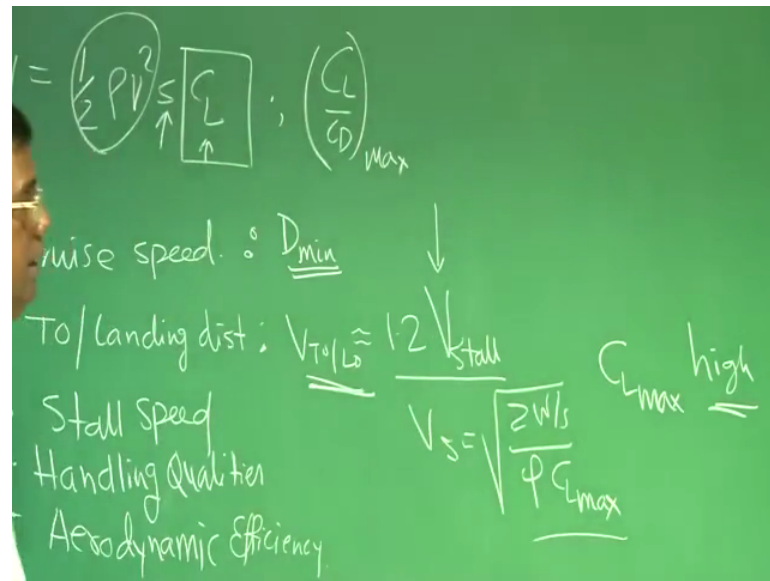 = 1/2 ρV² S C_L ; (C_L/C_D)max
uise speed : Dmin
To/Landing dist : V_TO/LD ≈ 1.2 Vstall
C_Lmax high
Stall Speed
V_s = √(2W/s / ρ C_Lmax)
Handling Qualities
Aerodynamic Efficiency